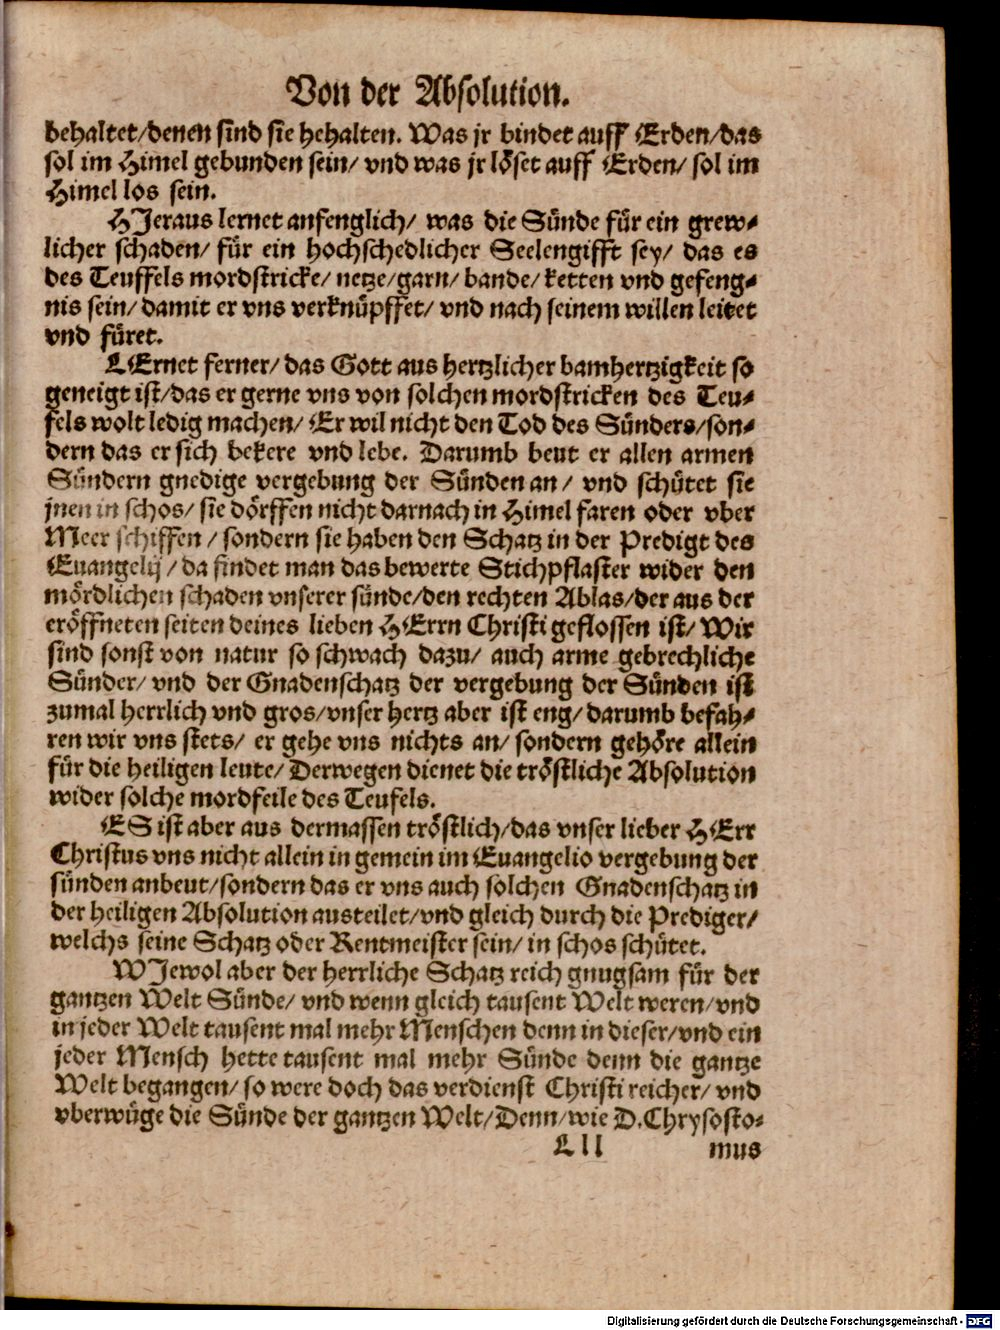 Von der Absolution.
behaltet/denen sind sie hehalten. Was jr bindet auff Erden/das
sol im Himel gebunden sein/ vnd was jr löset auff Erden/ sol im
Himel los sein.
HJeraus lernet anfenglich/ was die Sünde für ein grew-
licher schaden/ für ein hochschedlicher Seelengifft sey/ das es
des Teuffels mordstricke/ netze/garn/ bande/ ketten vnd gefeng-
nis sein/ damit er vns verknüpffet/ vnd nach seinem willen leitet
vnd füret.
LErnet ferner/ das Gott aus hertzlicher bamhertzigkeit so
geneigt ist/das er gerne vns von solchen mordstricken des Teu-
fels wolt ledig machen/ Er wil nicht den Tod des Sünders/son-
dern das er sich bekere vnd lebe. Darumb beut er allen armen
Sündern gnedige vergebung der Sünden an/ vnd schütet sie
jnen in schos/ sie dörffen nicht darnach in Himel faren oder vber
Meer schiffen/ sondern sie haben den Schatz in der Predigt des
Euangelij/ da findet man das bewerte Stichpflaster wider den
mördlichen schaden vnserer sünde/den rechten Ablas/der aus der
eröffneten seiten deines lieben HErrn Christi geflossen ist/ Wir
sind sonst von natur so schwach dazu/ auch arme gebrechliche
Sünder/ vnd der Gnadenschatz der vergebung der Sünden ist
zumal herrlich vnd gros/vnser hertz aber ist eng/ darumb befah-
ren wir vns stets/ er gehe vns nichts an/ sondern gehöre allein
für die heiligen leute/ Derwegen dienet die tröstliche Absolution
wider solche mordfeile des Teufels.
ES ist aber aus dermassen tröstlich/das vnser lieber HErr
Christus vns nicht allein in gemein im Euangelio vergebung der
sünden anbeut/sondern das er vns auch solchen Gnadenschatz in
der heiligen Absolution austeilet/vnd gleich durch die Prediger/
welchs seine Schatz oder Rentmeister sein/ in schos schütet.
WJewol aber der herrliche Schatz reich gnugsam für der
gantzen Welt Sünde/ vnd wenn gleich tausent Welt weren/vnd
in jeder Welt tausent mal mehr Menschen denn in dieser/vnd ein
jeder Mensch hette tausent mal mehr Sünde denn die gantze
Welt begangen/ so were doch das verdienst Christi reicher/ vnd
vberwüge die Sünde der gantzen Welt/Denn/wie D.Chrysosto-
Lll mus
Digitalisierung gefördert durch die Deutsche Forschungsgemeinschaft - DFG